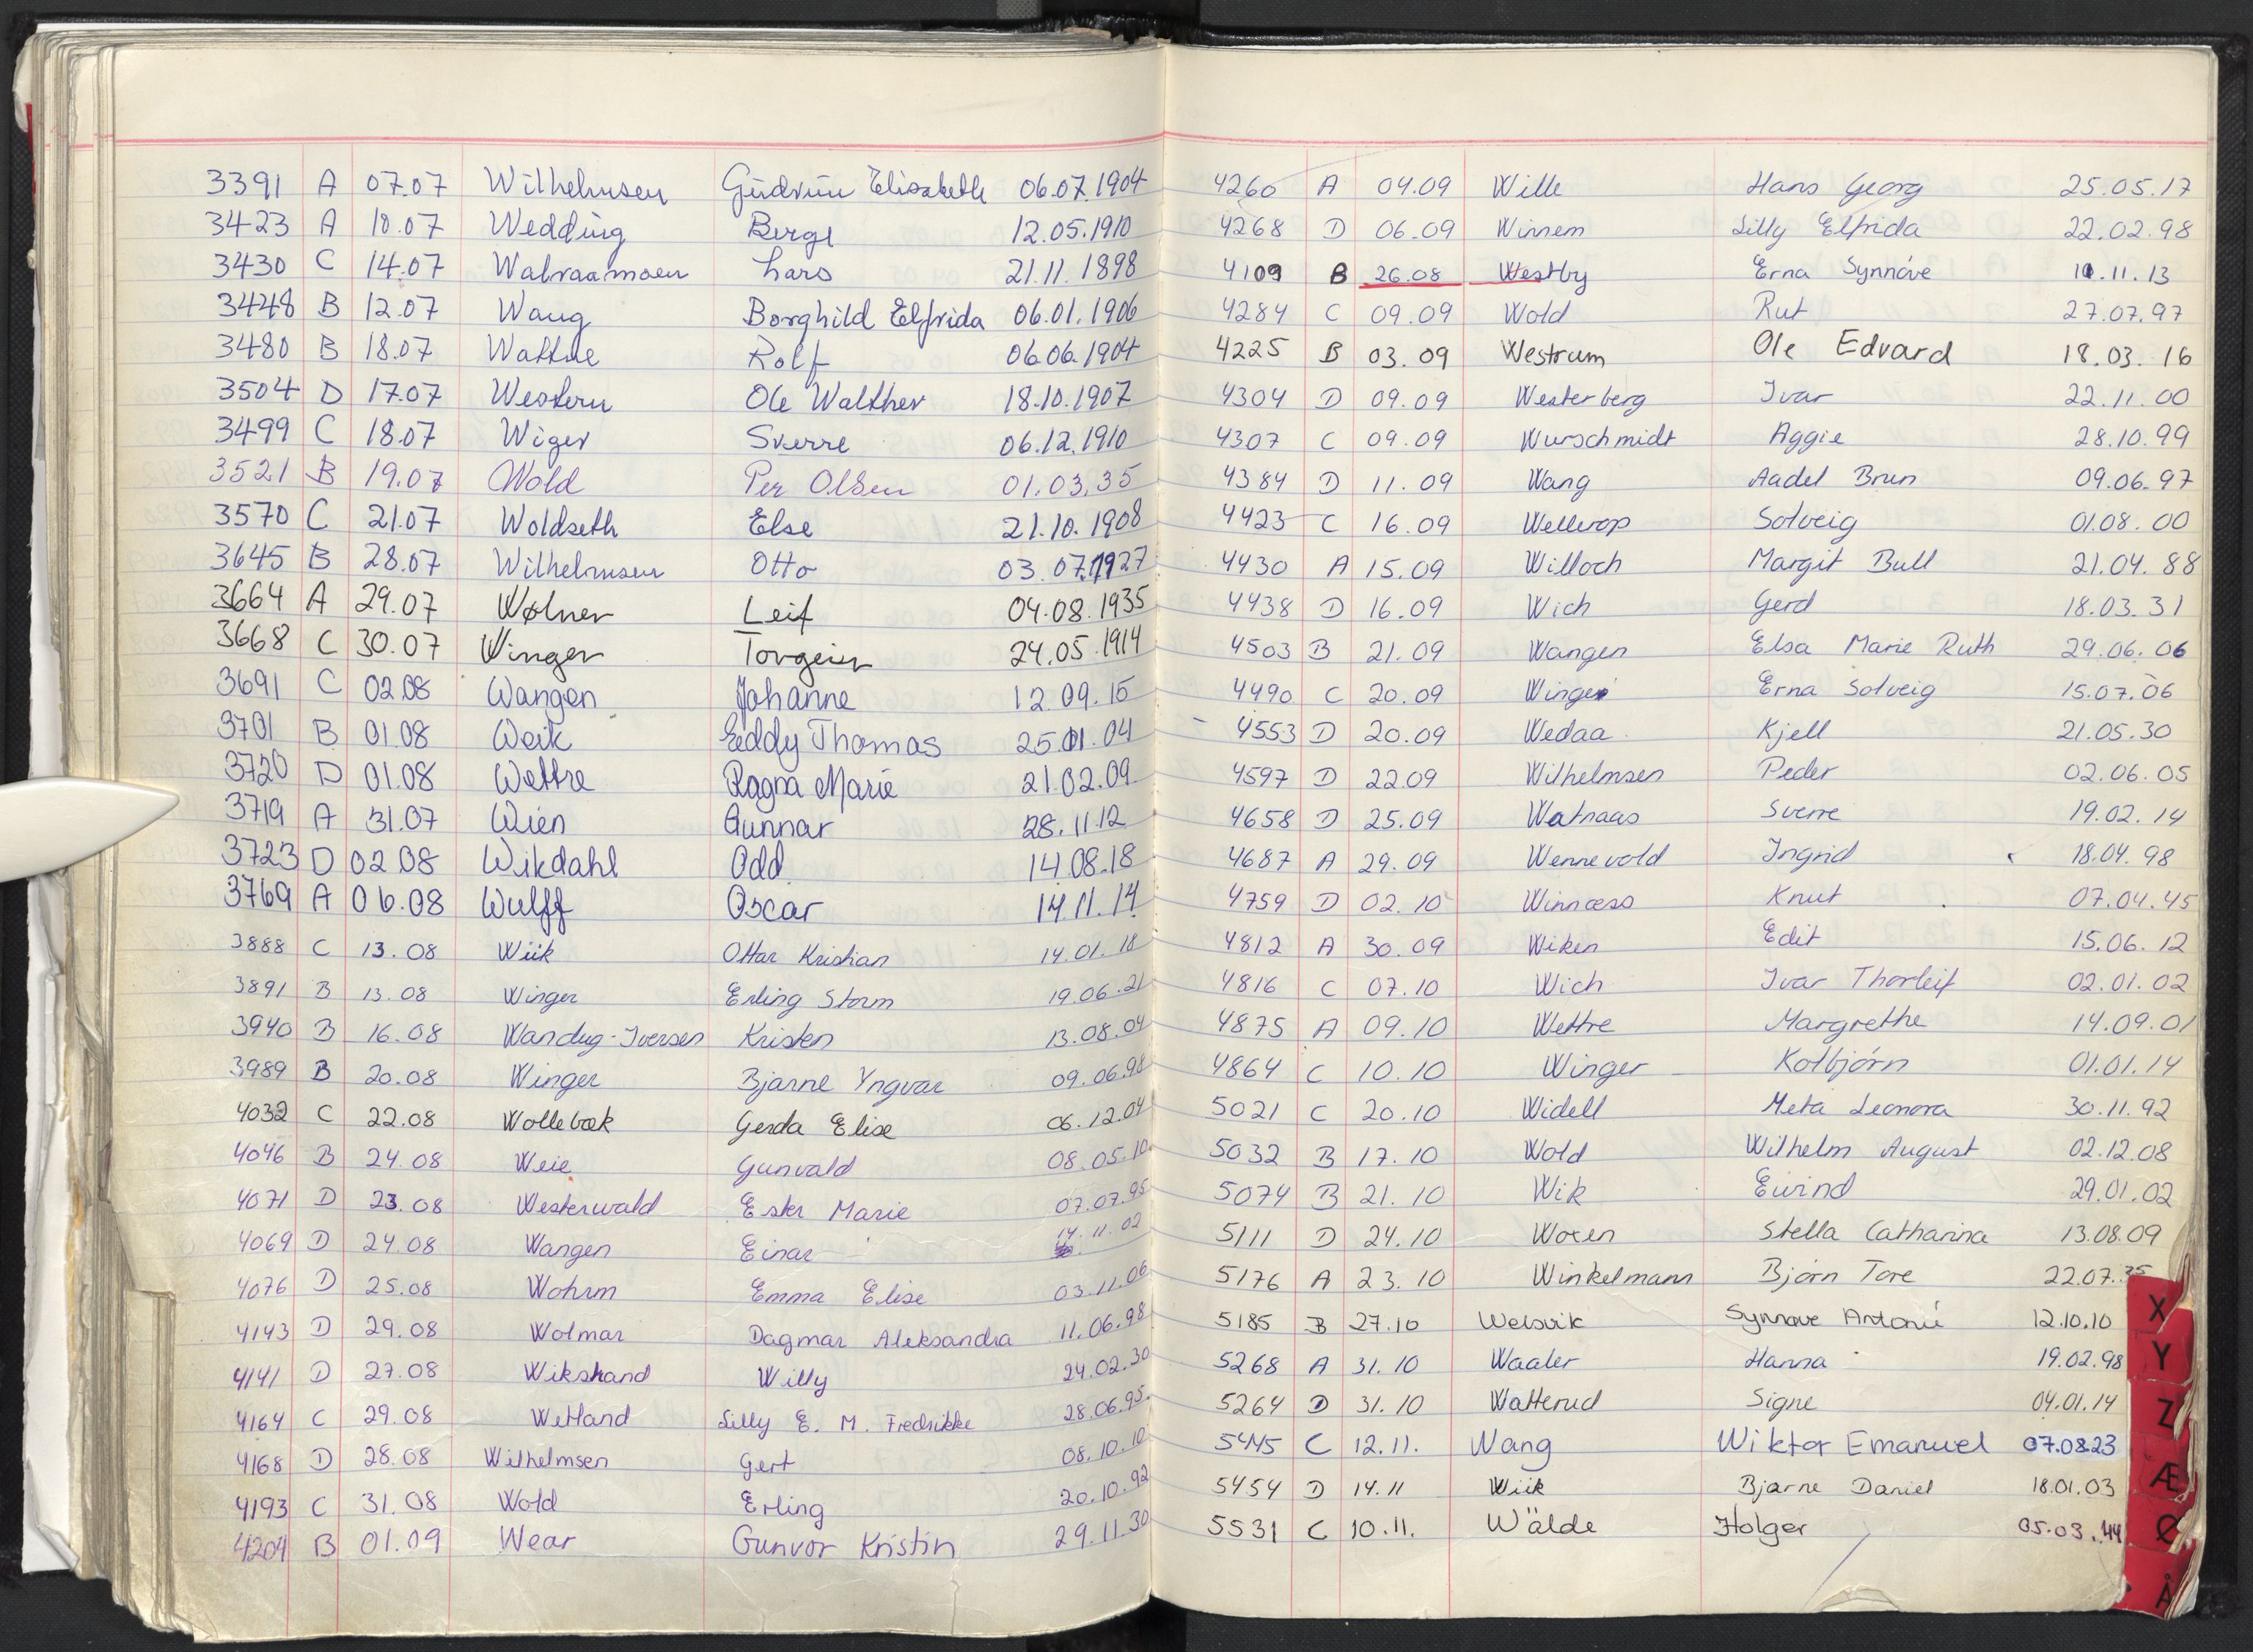 3391 A 07.07 Wilhelmsen Gudrun Elisabeth 06.07.1904
3423 A 10.07 Wedding Berge 12.05.1910
3430 C 14.07 Walraamoen Lars 21.11.1898
3448 B 12.07 Waug Borghild Elfrida 06.01.1906
3480 B 18.07 Wattne Rolf 06.06.1904
3504 D 17.07 Western Ole Walther 18.10.1907
3499 C 18.07 Wiger Sverre 06.12.1910
3521 B 19.07 Wold Per Olsen 01.03.35
3570 C 21.07 Woldseth Else 21.10.1908
3645 B 28.07 Wilhelmsen Otto 03.07.1927
3664 A 29.07 Wølner Leif 04.08.1935
3668 C 30.07 Winger Torgeir 24.05.1914
3691 C 02.08 Wangen Johanne 12.09.15
3701 B 01.08 Weik Eddy Thomas 25.01.04
3720 D 01.08 Wettre Ragna Marie 21.02.09
3719 A 31.07 Wien Gunnar 28.11.12
3723 D 02.08 Wikdahl Odd 14.08.18
3769 A 06.08 Wulff Oscar 14.11.14
3888 C 13.08 Wiik Ottar Kristian 14.01.18
3891 B 13.08 Winger Erling Storm 19.06.21
3940 B 16.08 Wandug-Iversen Kristen 13.08.04
3989 B 20.08 Winger Bjarne Yngvar 09.06.98
4032 C 22.08 Wollebæk Gerda Elise 06.12.04
4046 B 24.08 Weie Gunvald 08.05.10
4071 D 23.08 Westerwald Ester Marie 07.07.95
4069 D 24.08 Wangen Einar 14.11.02
4076 D 25.08 Wohrm Emma Elise 03.11.06
4143 D 29.08 Wolmar Dagmar Aleksandra 11.06.98
4141 D 27.08 Wikstrand Willy 24.02.30
4164 C 29.08 Wetland Lilly E. M. Fredrikke 28.06.95
4168 D 28.08 Wilhelmsen Gert 08.10.10
4193 C 31.08 Wold Erling 20.10.92
4204 B 01.09 Wear Gunvor Kristin 29.11.30
4260 A 04.09 Wille Hans Georg 25.05.17
4268 D 06.09 Winnem Lilly Elfrida 22.02.98
4109 B 26.08 Westby Erna Synnöve 10.11.13
4284 C 09.09 Wold Rut 27.07.97
4225 B 03.09 Westrum Ole Edvard 18.03.16
4304 D 09.09 Westerberg Ivar 22.11.00
4307 C 09.09 Wurschmidt Aggie 28.10.99
4384 D 11.09 Wang Aadel Brun 09.06.97
4423 C 16.09 Wellerop Solveig 01.08.00
4430 A 15.09 Willoch Margit Bull 21.04.88
4438 D 16.09 Wich Gerd 18.03.31
4503 B 21.09 Wangen Elsa Marie Ruth 29.06.06
4490 C 20.09 Winger Erna Solveig 15.07.06
4553 D 20.09 Wedaa Kjell 21.05.30
4597 D 22.09 Wilhelmsen Peder 02.06.05
4658 D 25.09 Watnaas Sverre 19.02.14
4687 A 29.09 Wennevold Ingrid 18.04.98
4759 D 02.10 Winnæss Knut 07.04.45
4812 A 30.09 Wiken Edit 15.06.12
4816 C 07.10 Wich Ivar Thorleif 02.01.02
4875 A 09.10 Wettre Margrethe 14.09.01
4864 C 10.10 Winger Kolbjörn 01.01.14
5021 C 20.10 Widell Meta Leonora 30.11.92
5032 B 17.10 Wold Wilhelm August 02.12.08
5074 B 21.10 Wik Eivind 29.01.02
5111 D 24.10 Woxen Stella Catharina 13.08.09
5176 A 23.10 Winkelmann Bjørn Tore 22.07.35
5185 B 27.10 Welsvik Synnøve Antonie 12.10.10
5268 A 31.10 Waaler Hanna 19.02.98
5264 D 31.10 Watterud Signe 04.01.14
5445 C 12.11. Wang Wiktor Emanuel 07.08.23
5454 D 14.11 Wiik Bjarne Daniel 18.01.03
5531 C 10.11. Wälde Holger 05.03.44
X
Y
Z
Æ
Ø
Å